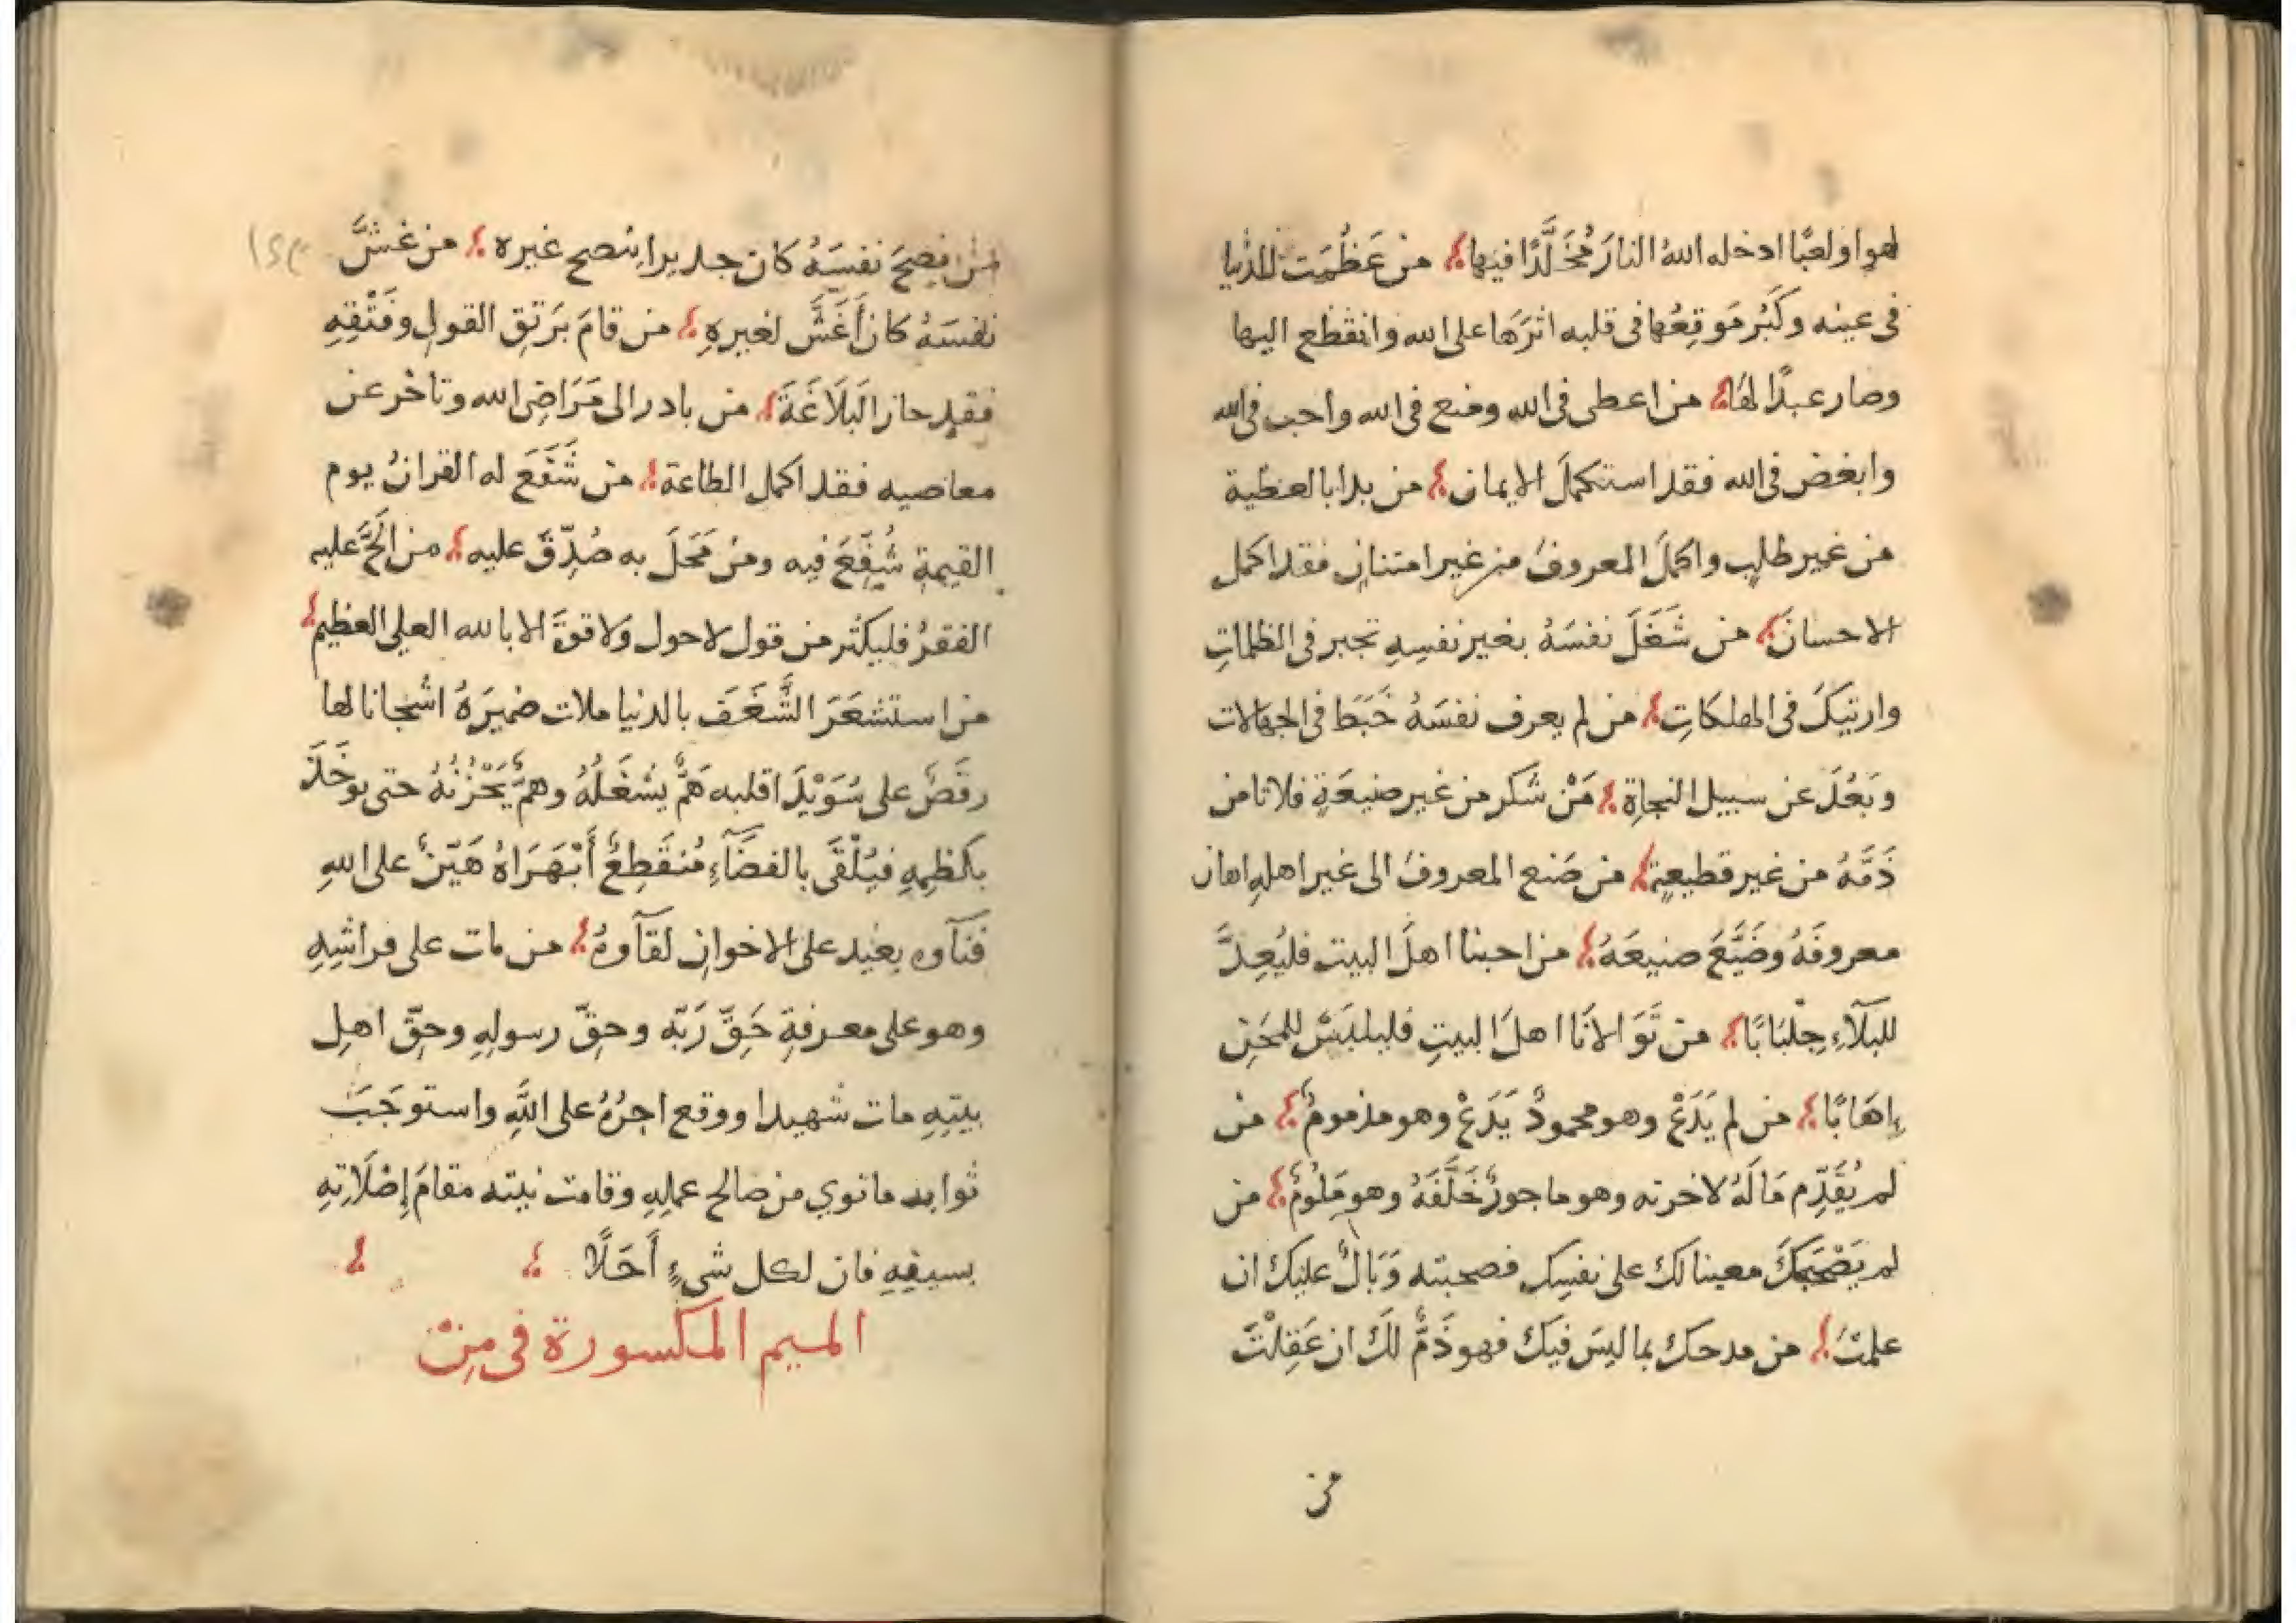 لهوا ولعبًا ادخله اللهُ النارَ مُخَلَّدًا فيها؛ من عَظُمَت الدُّنيا
فى عينه وكَبُرَ مَوقِعُها فى قلبه اثرَها على الله وانقطع اليها
وصار عبدًا لهَا؛ من اعطى فى الله ومنع فى الله واحب فى الله
وابغض فى الله فقد استكملَ الايمان؛ من بدا بالعطية
من غير طلبٍ واكملَ المعروفَ من غير امتنانٍ فقد اكمل
الاحسانَ؛ من شَغَلَ نفسَهُ بغير نفسِهِ تحير فى الظلماتِ
وارتبكَ فى الهلكاتِ؛ من لم يعرف نفسَهُ خَبَطَ فى الجهالات
وبَعُدَ عن سبيل النجاةِ؛ مَنْ شكر من غير صنيعَةٍ فلا تامن
ذَمَّهُ من غير قطيعةٍ؛ من صَنع المعروفَ الى غير اهلهِ اهان
معروفَهُ وضَيَّعَ صنيعَهُ؛ من احبنا اهلَ البيت فليُعِدَّ
للبَلَآءِ جِلْبَابًا؛ من تَوَالانَا اهلَ البيتِ فليلبَسْ للمِحَنِ
إِهَابًا؛ من لم يَدَعْ وهو محمودٌ يَدَعْ وهو مذمومٌ؛ من
لم يُقَدِّم مَالَهُ لاخرته وهو ماجورٌ خَلَّفَهُ وهو مَلُومٌ؛ من
لم يَصْحَبكَ معينا لك على نفسِك فصحبته وَبَالٌ عليك ان
علمتَ؛ من مدحك بما ليسَ فيكَ فهو ذَمٌّ لكَ ان عَقِلْتَ
من
١٢٣
من نصحَ نفسَهُ كان جديرا بنصح غيره؛ من غشَّ
نفسَهُ كان أَغَشَّ لغيرهِ؛ من قامَ بَرَتقِ القولِ وفَتْقِهِ
فقد حاز البَلَاغَةَ؛ من بادر الى مَرَاضِى الله وتاخر عن
معاصيه فقد اكمل الطاعة؛ من شَفَعَ له القرانُ يوم
القيمةِ شُفِّعَ فيه ومن مَحَلَ به صُدِّقَ عليه؛ من الَحَّ عليه
الفقرُ فليكثر من قول لا حول ولا قوةَ الا بالله العلي العظيم؛
من استشعَرَ الشَّغَفَ بالدنيا ملات ضميرَهُ اشجانا لها
رقَصٌ على سُوَيْدَا قلبه هَمٌّ يشغَلُهُ وهَمٌّ يَحْزُنُهُ حتى يوخَذَ
بكظمِهِ فيُلْقَى بالفضَآءِ مُنقَطِعٌ أَبْهَرَاهُ هَيّنٌ على اللهِ
فنَآوه بعيد على الاخوانِ لقَآوهُ؛ من مات على فراشِهِ
وهو على معرفةِ حَقِّ رَبِّه وحقِّ رسولهِ وحقِّ اهلِ
بيتِهِ مات شهيدا ووقع اجرُهُ على اللَّهِ واستوجَبَ
ثواب ما نوي من صالح عملِهِ وقامت نيته مقامَ إِصْلَاتِهِ
بسيفِهِ فان لكل شيءٍ أَجَلًا؛ ؛
الميم المكسورة فى مِنْ